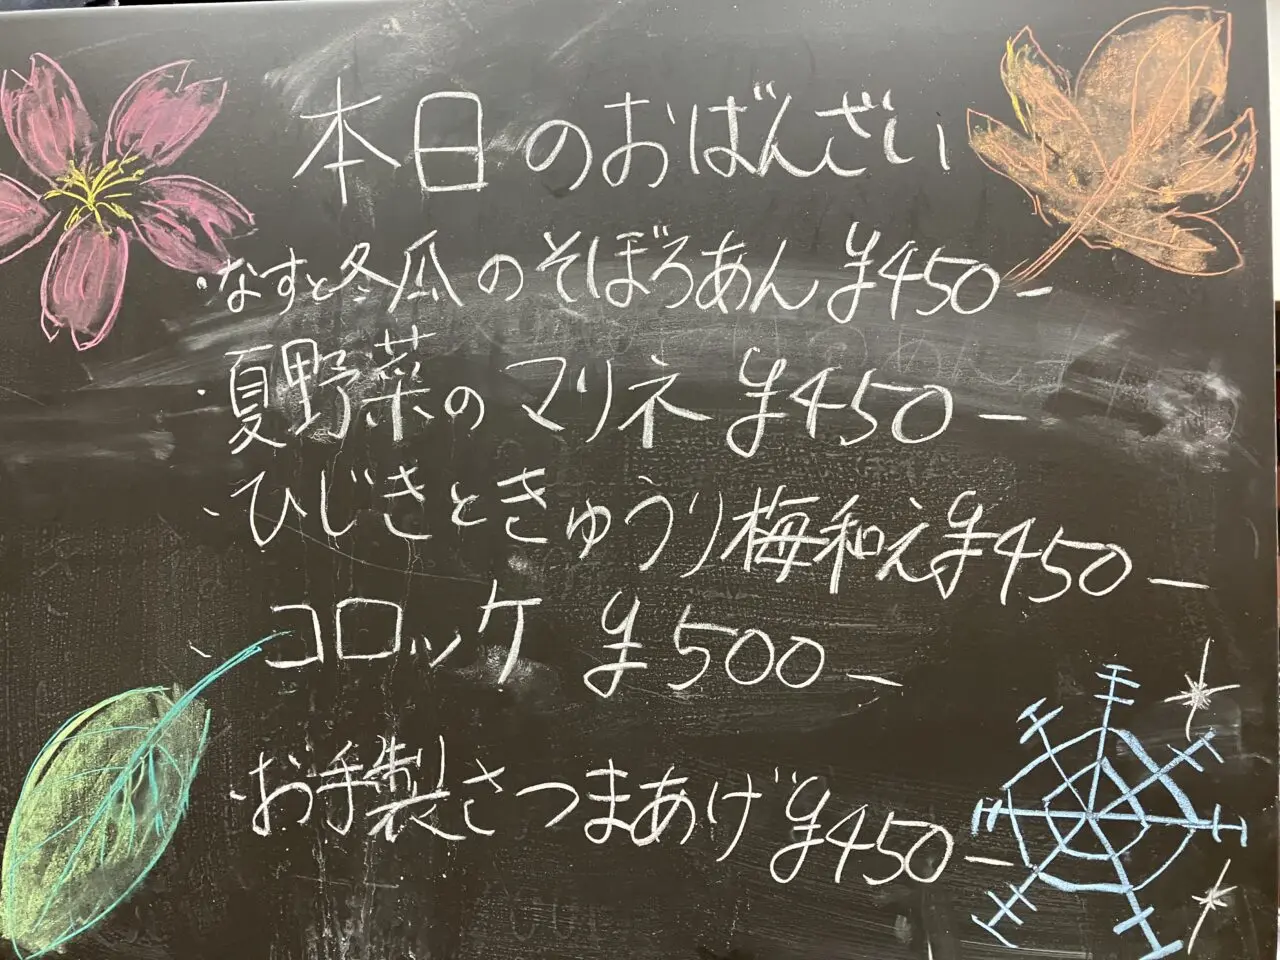 本日のおばんざい
・なすと冬瓜のそぼろあん ¥450-
・夏野菜のマリネ ¥450-
・ひじきときゅうり梅和え ¥450-
・コロッケ ¥500-
・お手製さつまあげ ¥450-